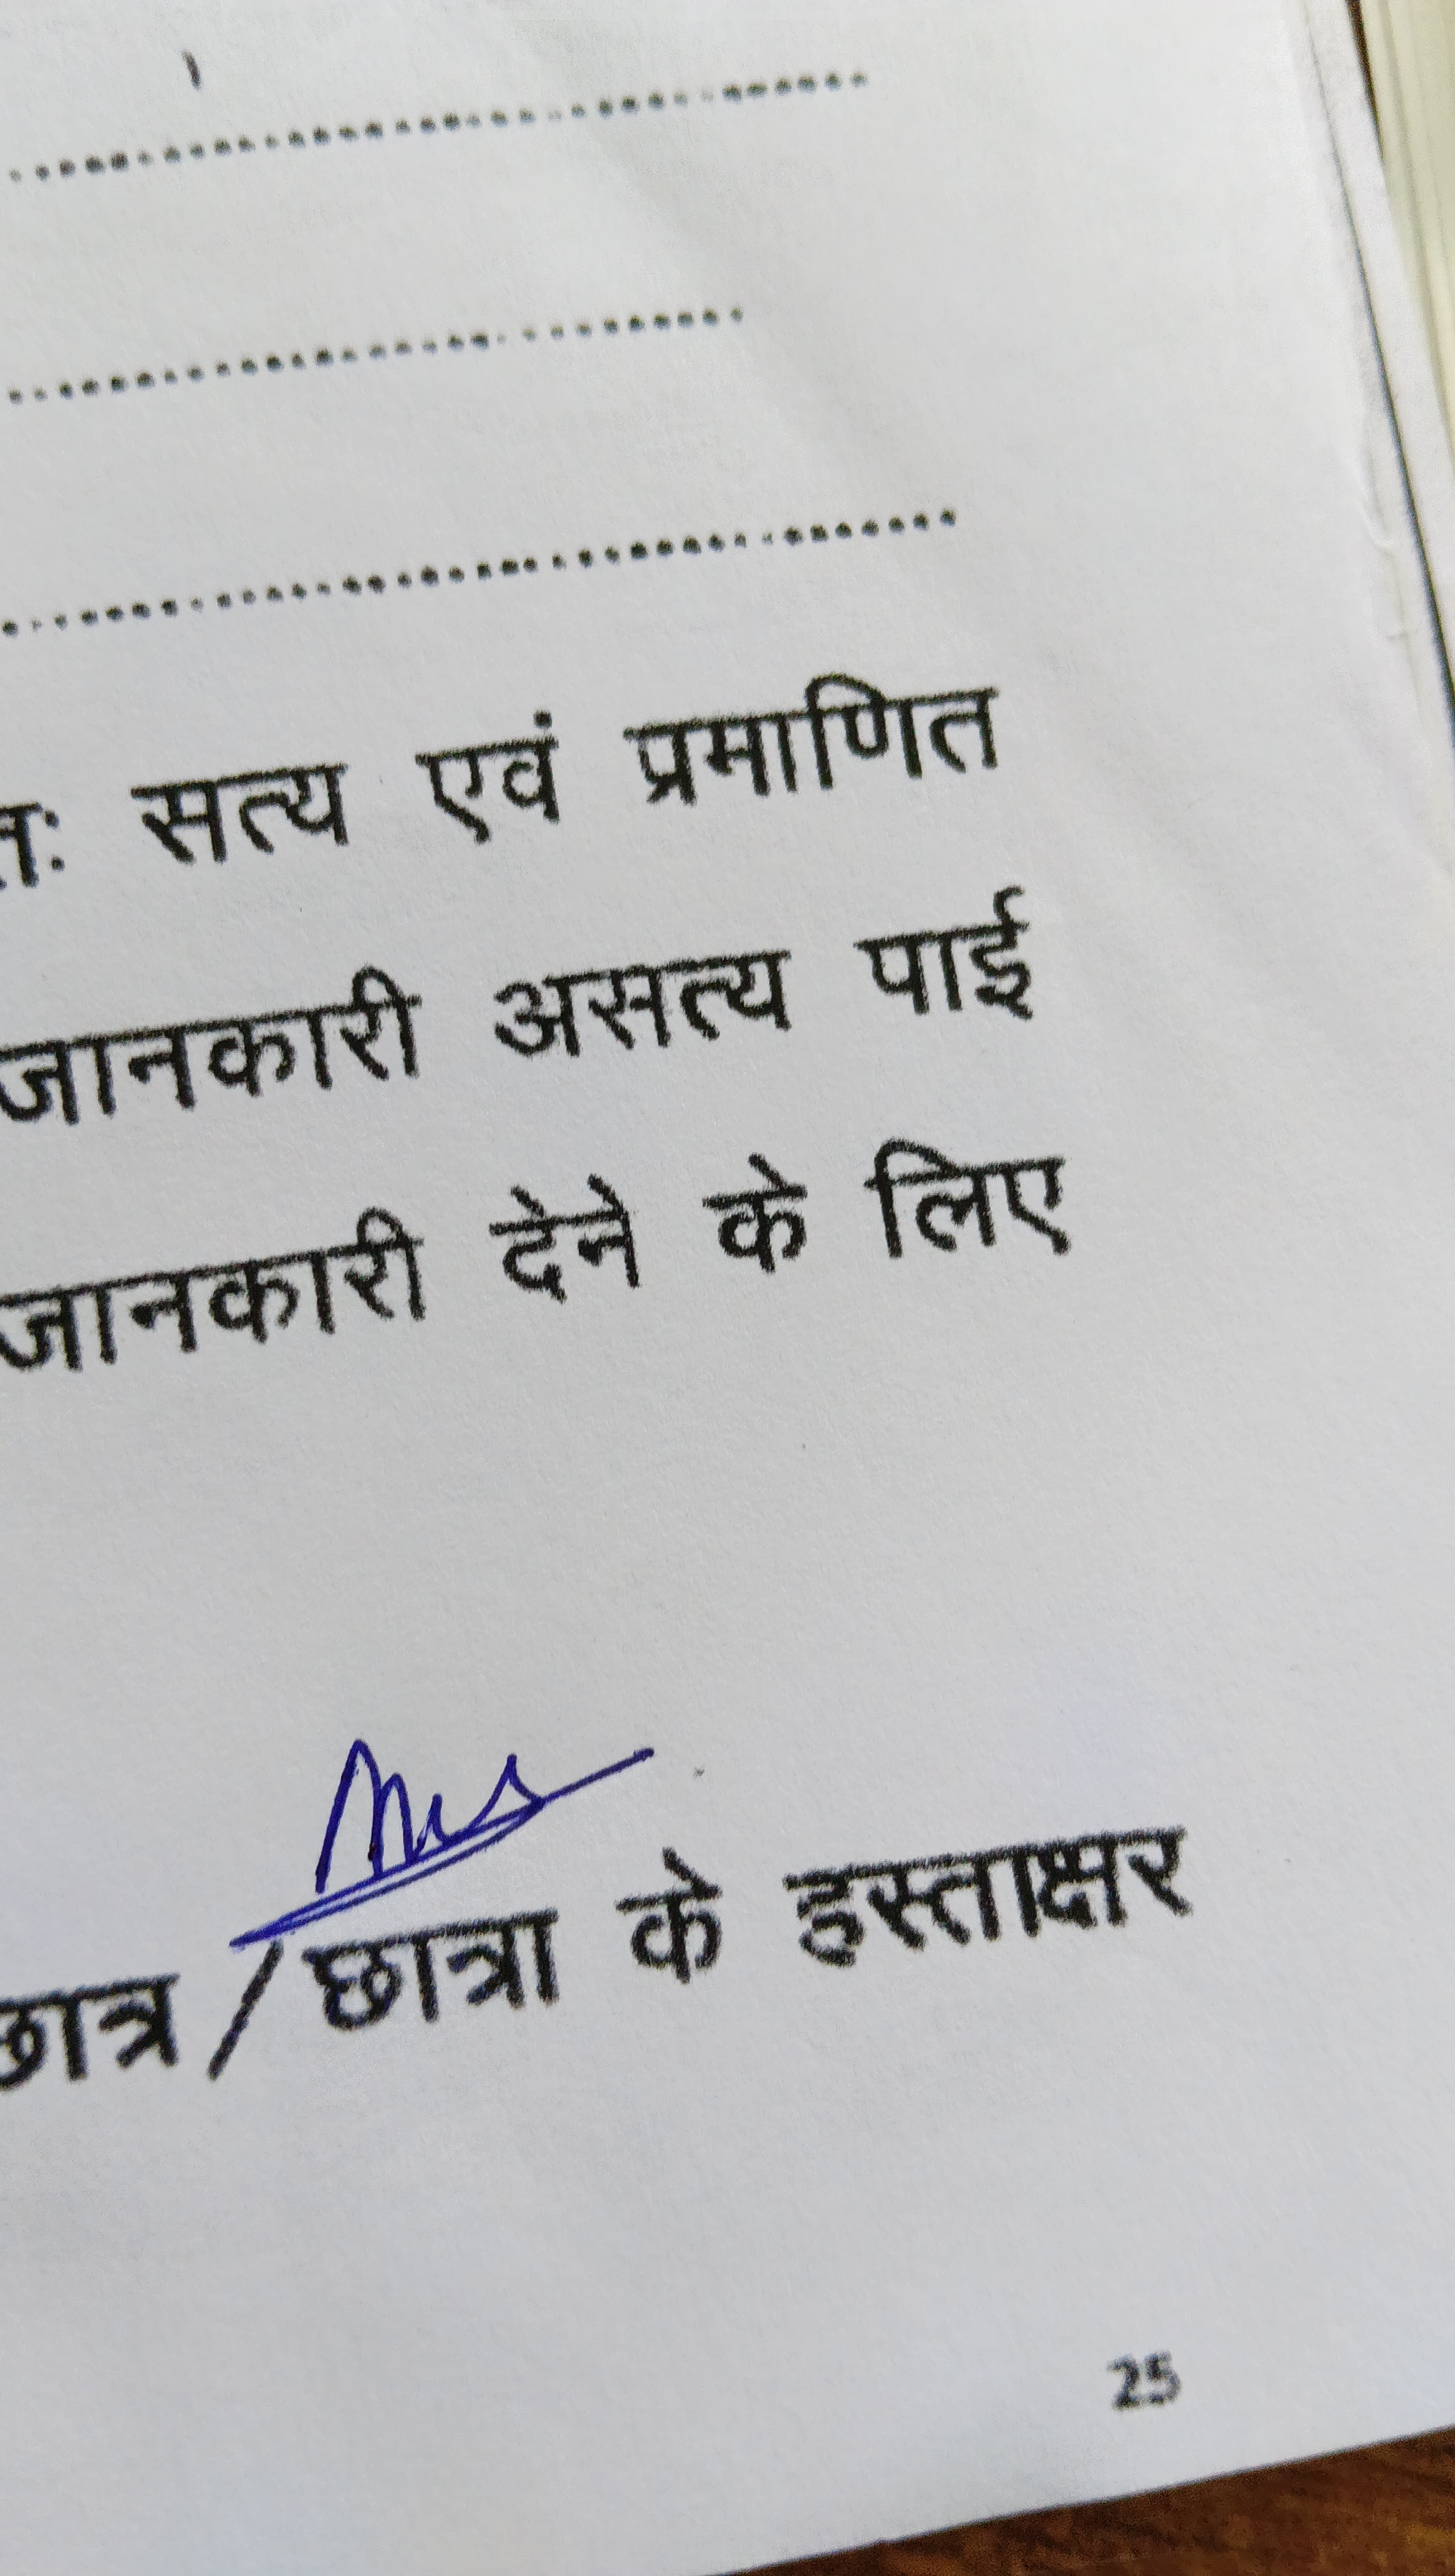 तः सत्य एवं प्रमाणित
जानकारी असत्य पाई
जानकारी देने के लिए
छात्र / छात्रा के हस्ताक्षर
25